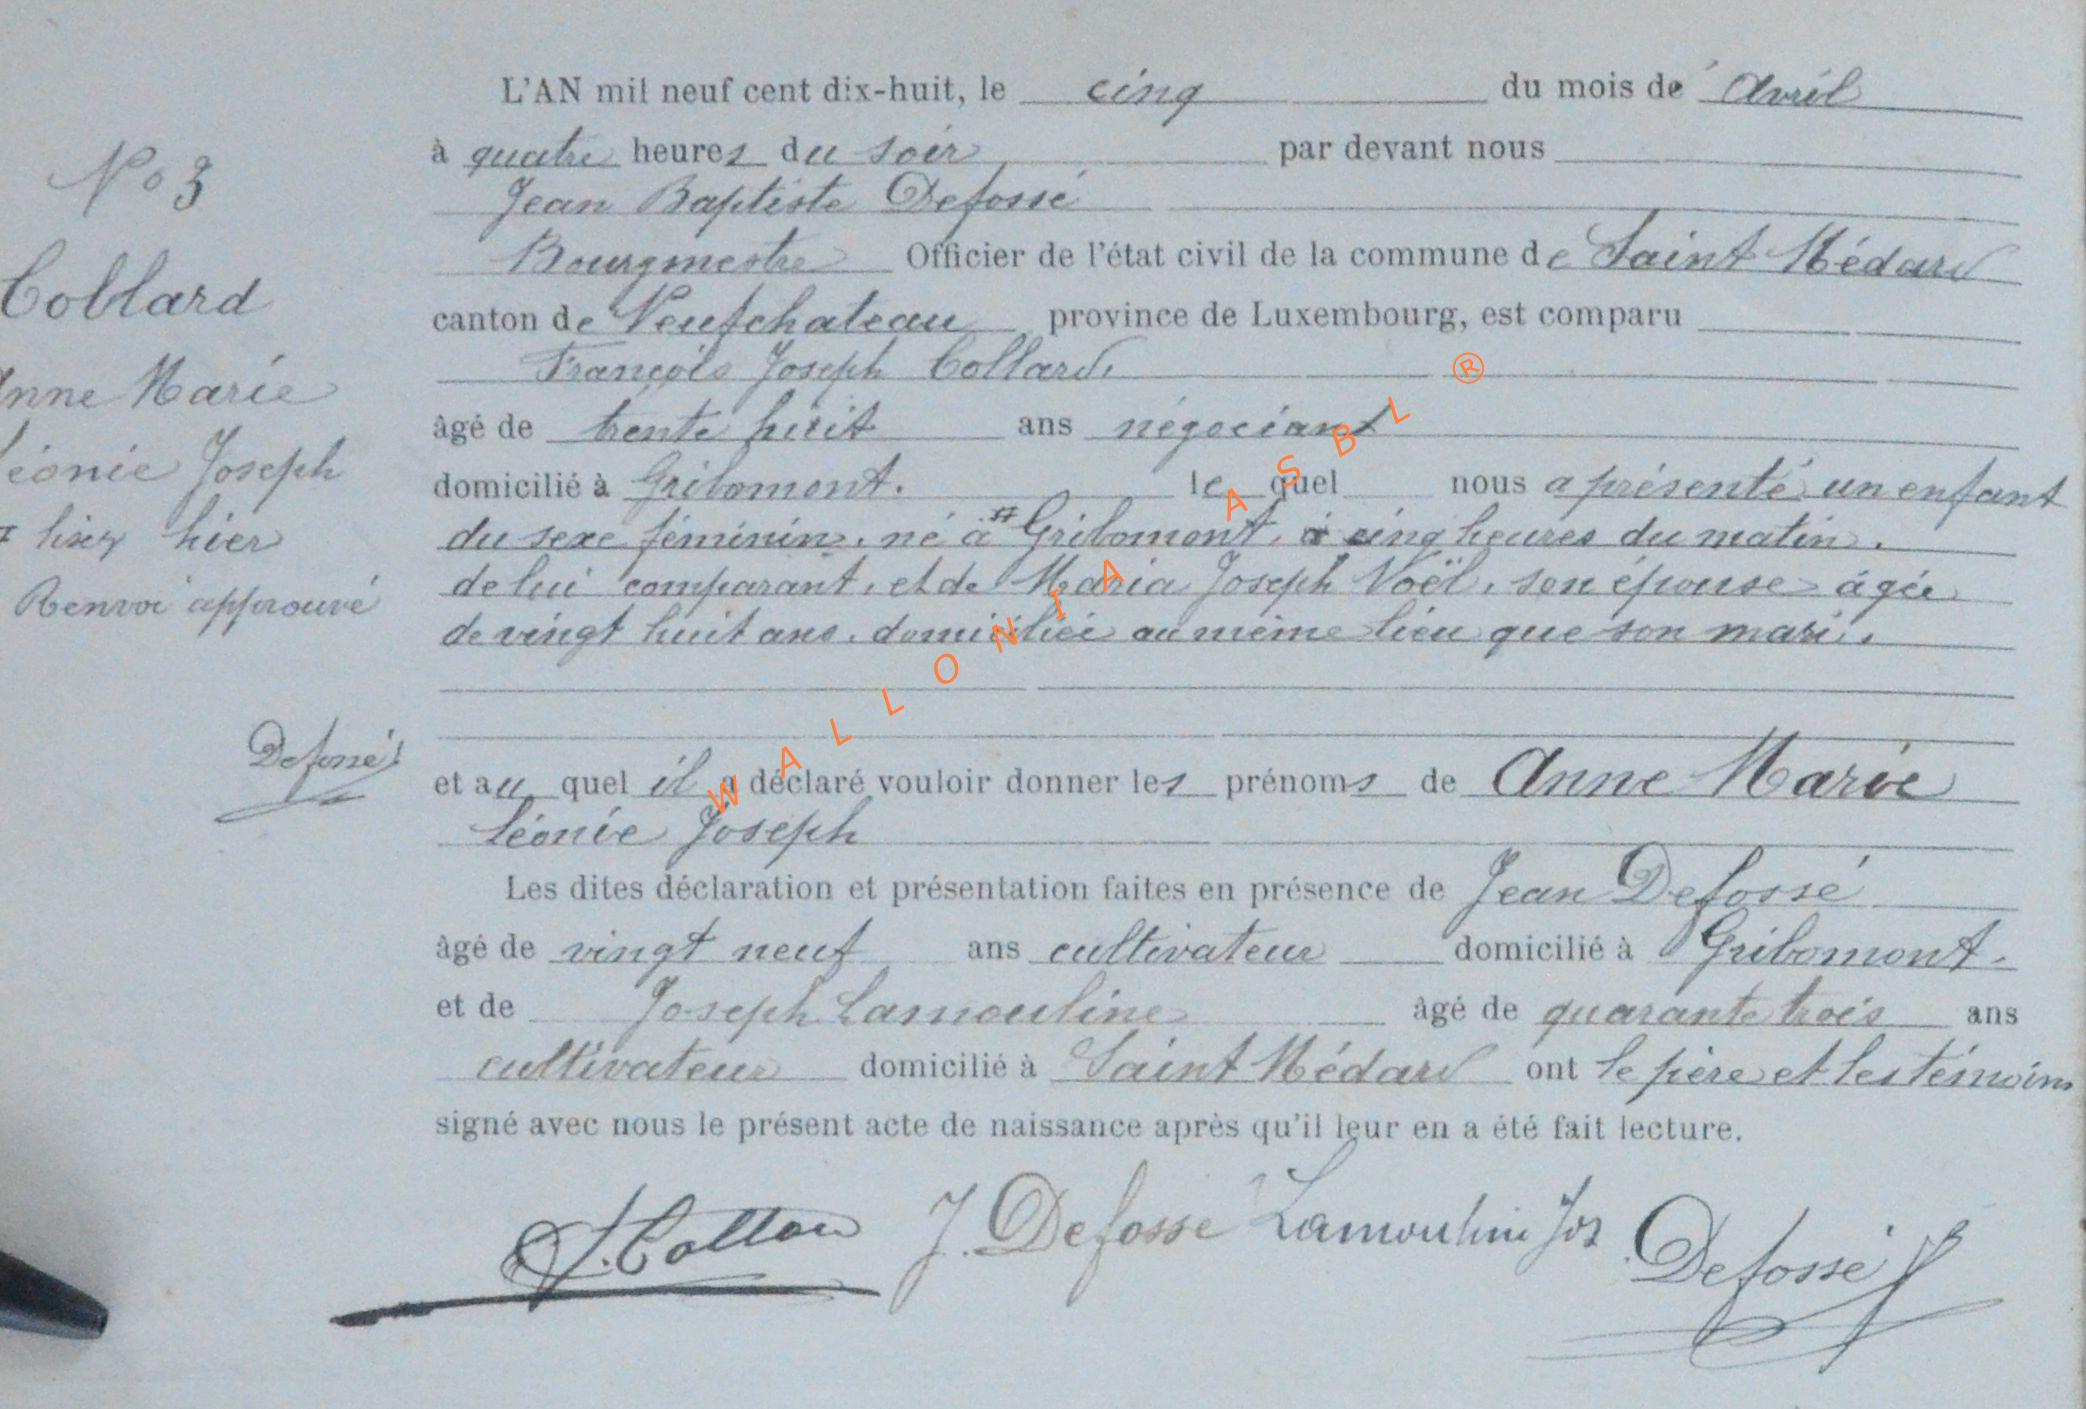 L'AN mil neuf cent dix-huit, le cinq du mois de Avril
à quatre heures du soir par devant nous
Jean Baptiste Defossé
Bourgmestre Officier de l'état civil de la commune de Saint Médard
canton de Neufchateau province de Luxembourg, est comparu
François Joseph Collard,
âgé de trente huit ans négociant
domicilié à Gribomont. lequel nous a présenté un enfant
du sexe féminin, né à # Gribomont, à cinq heures du matin.
de lui comparant, et de Maria Joseph Noël, son épouse âgée
de vingt huit ans, domiciliée au même lieu que son mari.
et au quel il a déclaré vouloir donner les prénoms de Anne Marie
Léonie Joseph
Les dites déclaration et présentation faites en présence de Jean Defossé
âgé de vingt neuf ans cultivateur domicilié à Gribomont.
et de Joseph Lamouline âgé de quarante trois ans
cultivateur domicilié à Saint Médard ont le père et les témoins
signé avec nous le présent acte de naissance après qu'il leur en a été fait lecture.
No 3
Collard
Anne Marie
Léonie Joseph
# lisez hier
Renvoi approuvé
Defossé
J. Defosse Lamouline Jos Defossé
WALLONIA ASBL ®